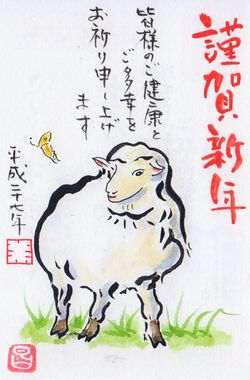 謹賀新年
皆様のご健康と
ご多幸を
お祈り申し上げ
ます
平成二十七年